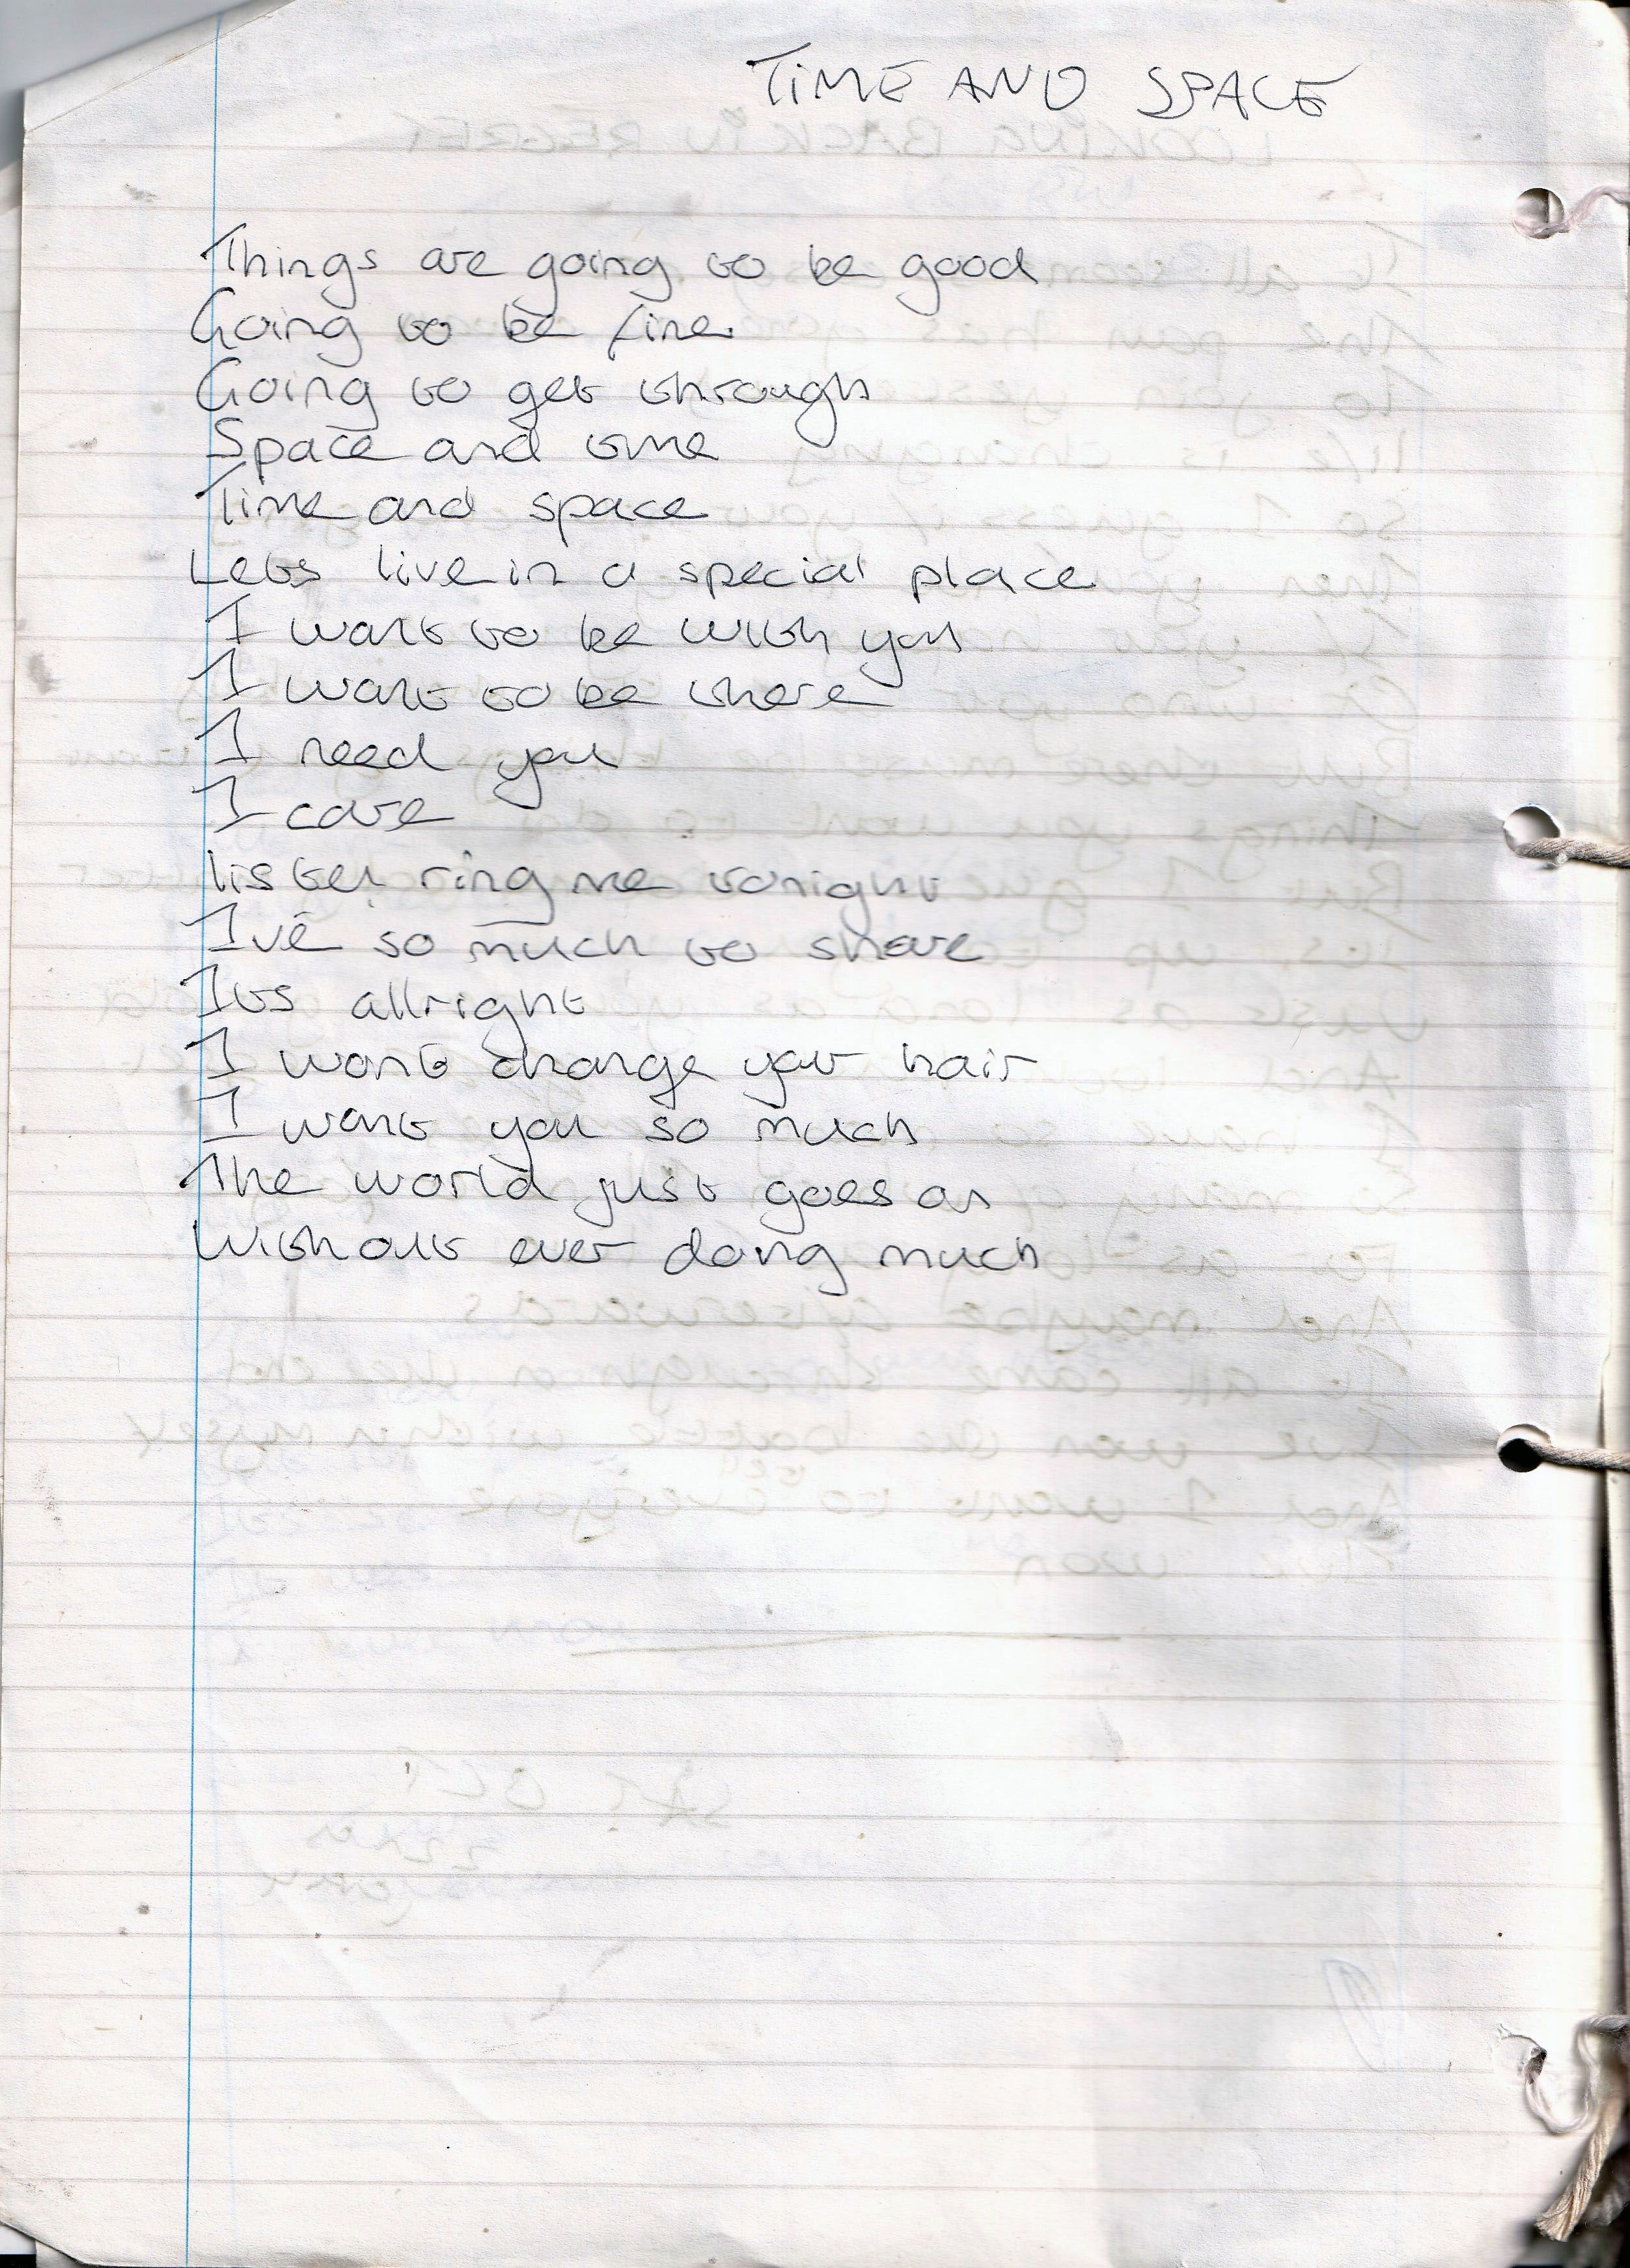 TIME AND SPACE
Things are going to be good
Going to be fine.
Going to get through
Space and time
Time and space
Lets live in a special place
I want to be with you
I want to be there
I need you
I care
listen ring me tonight
Ive so much to share
Its allright
I wont change your hair
I want you so much
The world just goes on
Without ever doing much